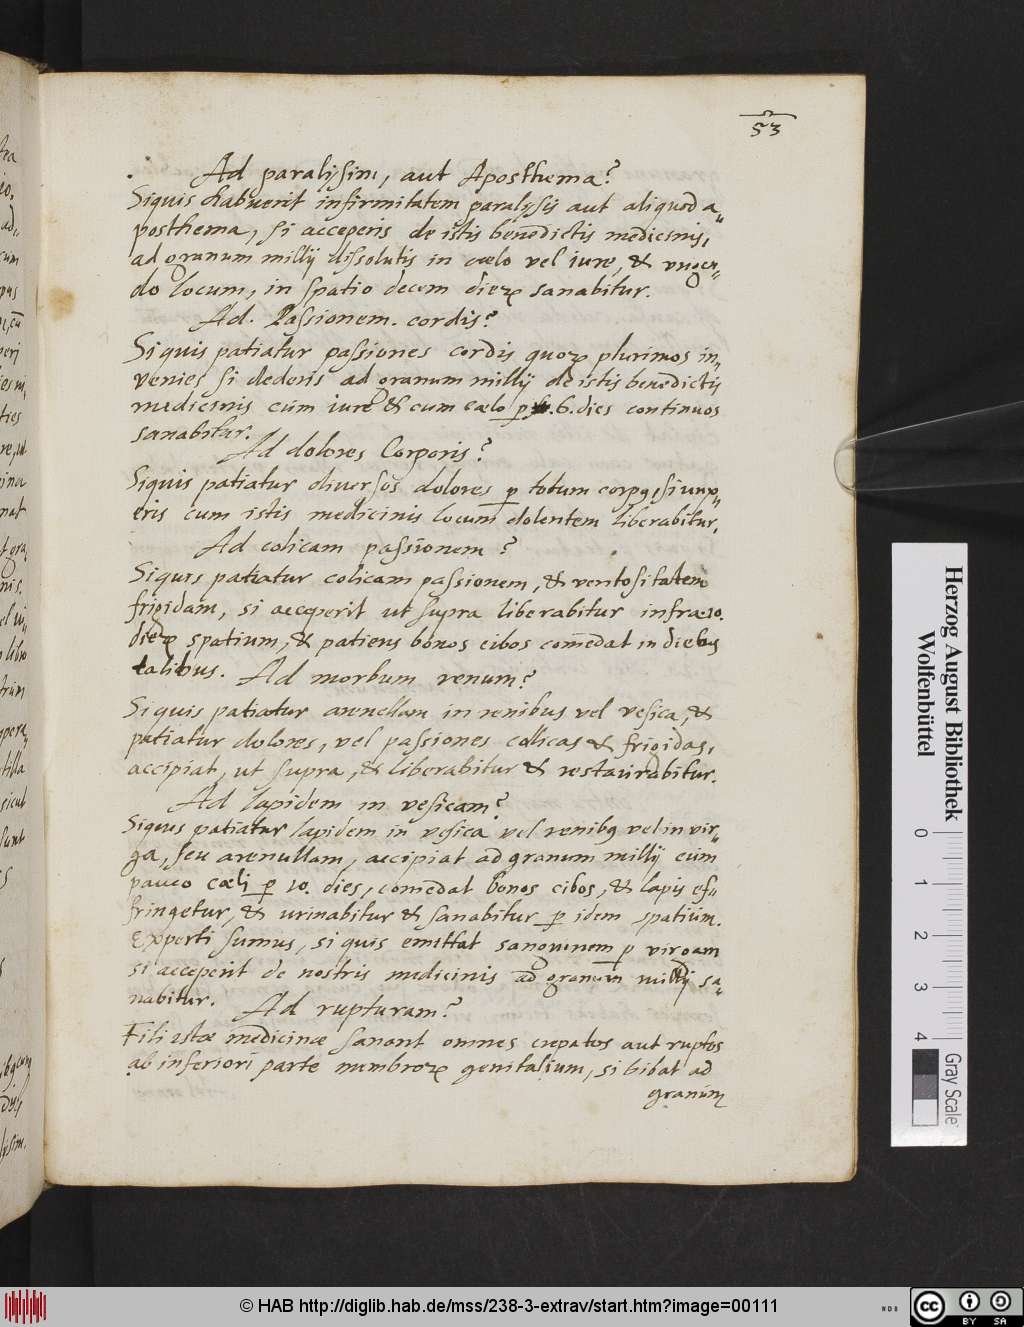 53
Ad paralysim, aut Aposthema?
Siquis habuerit infirmitatem paralysis aut aliquod a=
posthema, si acceperis de istis benedictis medicinis,
ad granum milij dissolutis in cælo vel iure, & ungen=
do locum, in spatio decem dierꝝ sanabitur.
Ad. Passionem. cordis?
Siquis patiatur passiones cordis quorꝝ plurimos in=
venies si dederis ad granum milij de istis benedictis
medicinis cum iure & cum cælo ꝑ 6. dies continuos
sanabitur.
Ad dolores Corporis?
Siquis patiatur diversos dolores ꝑ totum corpꝰ, si unx=
eris cum istis medicinis locum dolentem liberabitur.
Ad colicam passionem?
Siquis patiatur colicam passionem, & ventositatem
frigidam, si acceperit ut supra liberabitur infra 10.
dierꝝ spatium, & patiens bonos cibos comēdat in diebus
talibus. Ad morbum renum?
Siquis patiatur arenellam in renibus vel vesica, &
patiatur dolores, vel passiones collicas & frigidas,
accipiat, ut supra, & liberabitur & restaurabitur.
Ad lapidem in vesicam?
Siquis patiatur lapidem in vesica vel renibꝰ vel in vir=
ga, seu arenullam, accipiat ad granum milij cum
pauco cæli ꝑ 10. dies, comēdat bonos cibos, & lapis ef=
fringetur, & urinabitur & sanabitur ꝑ idem spatium.
Experti sumus, si quis emittat sanguinem ꝑ virgam
si acceperit de nostris medicinis ad granum milij sa=
nabitur. Ad rupturam?
Fili istæ medicinæ sanant omnes crepatos aut ruptos
ab inferiori parte membrorꝝ genitalium, si bibat ad
granum
Herzog August Bibliothek
Wolfenbüttel
0 1 2 3 4
Gray Scale
© HAB http://diglib.hab.de/mss/238-3-extrav/start.htm?image=00111
cc BY SA